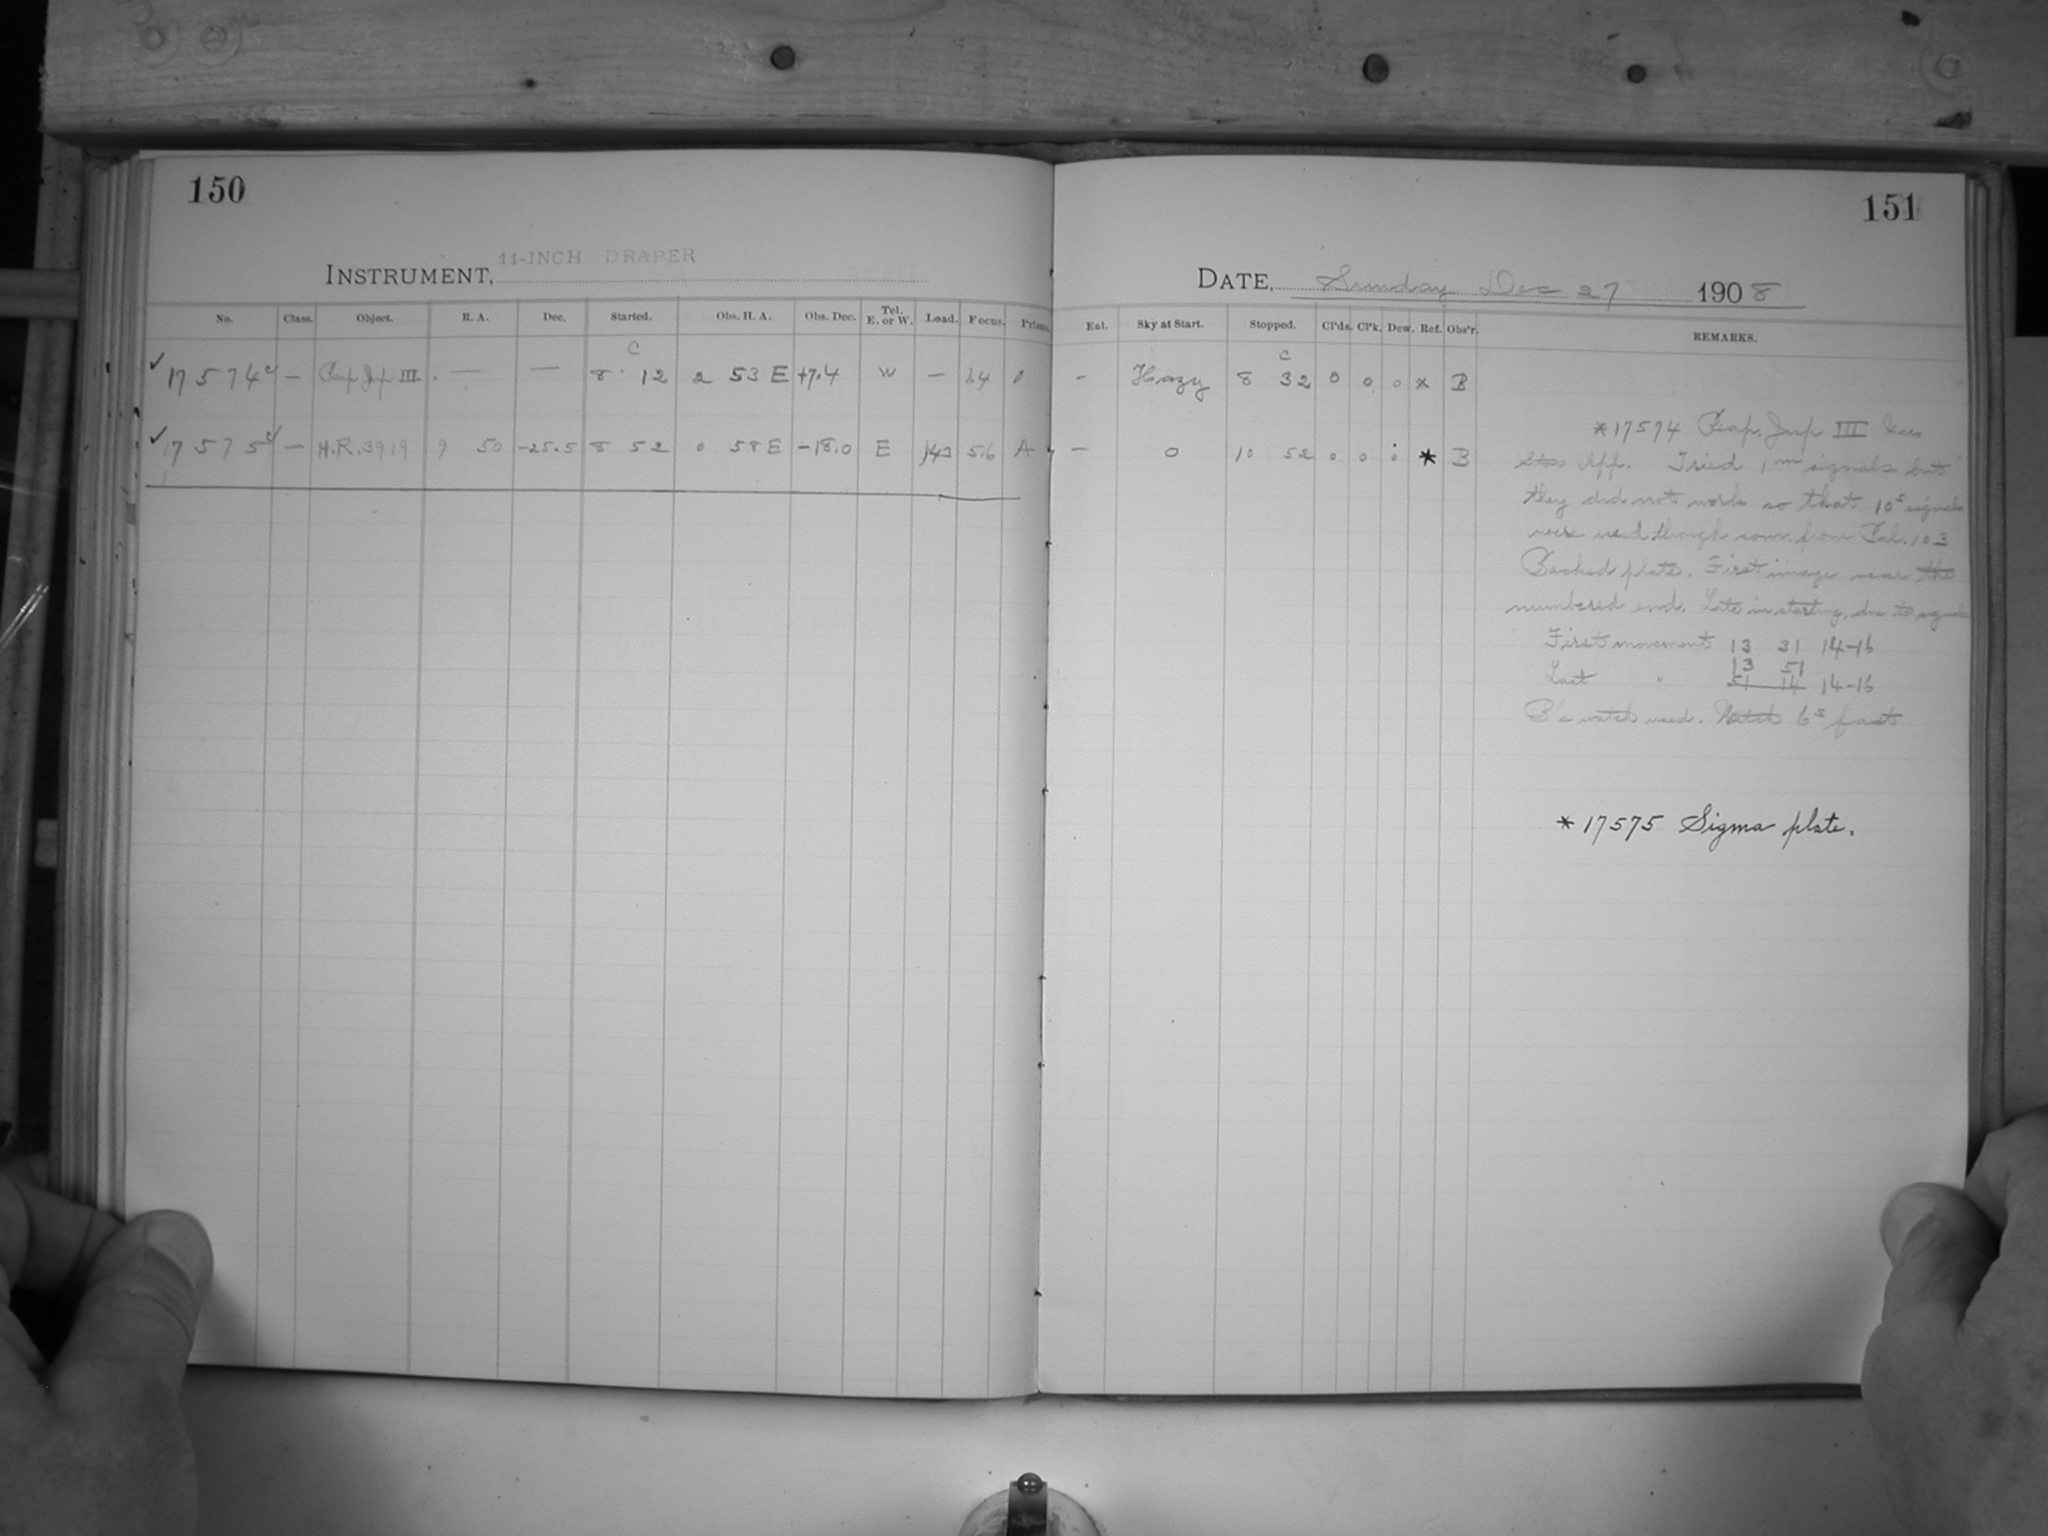 150
INSTRUMENT, 11-INCH DRAPER
No. Class. Object. R. A. Dec. Started. Obs. H. A. Obs. Dec. Tel. E. or W. Load. Focus. Prisms.
C
✓ 17574 — Reap. Jup III. — — 8 12 2 53 E +7.4 W — 0
✓ 17575 — H.R. 3919 9 50 -25.5 8 52 0 58 E -18.0 E 143 5.6 A
151
DATE, Sunday Dec 27 1908
Eal. Sky at Start. Stopped. Cl'ds. Cl'k. Dew. Ref. Obs'r. REMARKS.
C
- Hazy 8 32 0 0 0 x B
— 0 10 52 0 0 0 * B
*17574 Reap. Jup III
App. Tried 1m signals but
they did not work so that 10s signals
were used though some from Bal. 103
Backed plate. First image near the
numbered end. Late in starting, due to signals
First movement 13 31 14-16
13 51
Last " 51 14 14-16
B's watch used. Watch 6s fast
* 17575 Sigma plate.